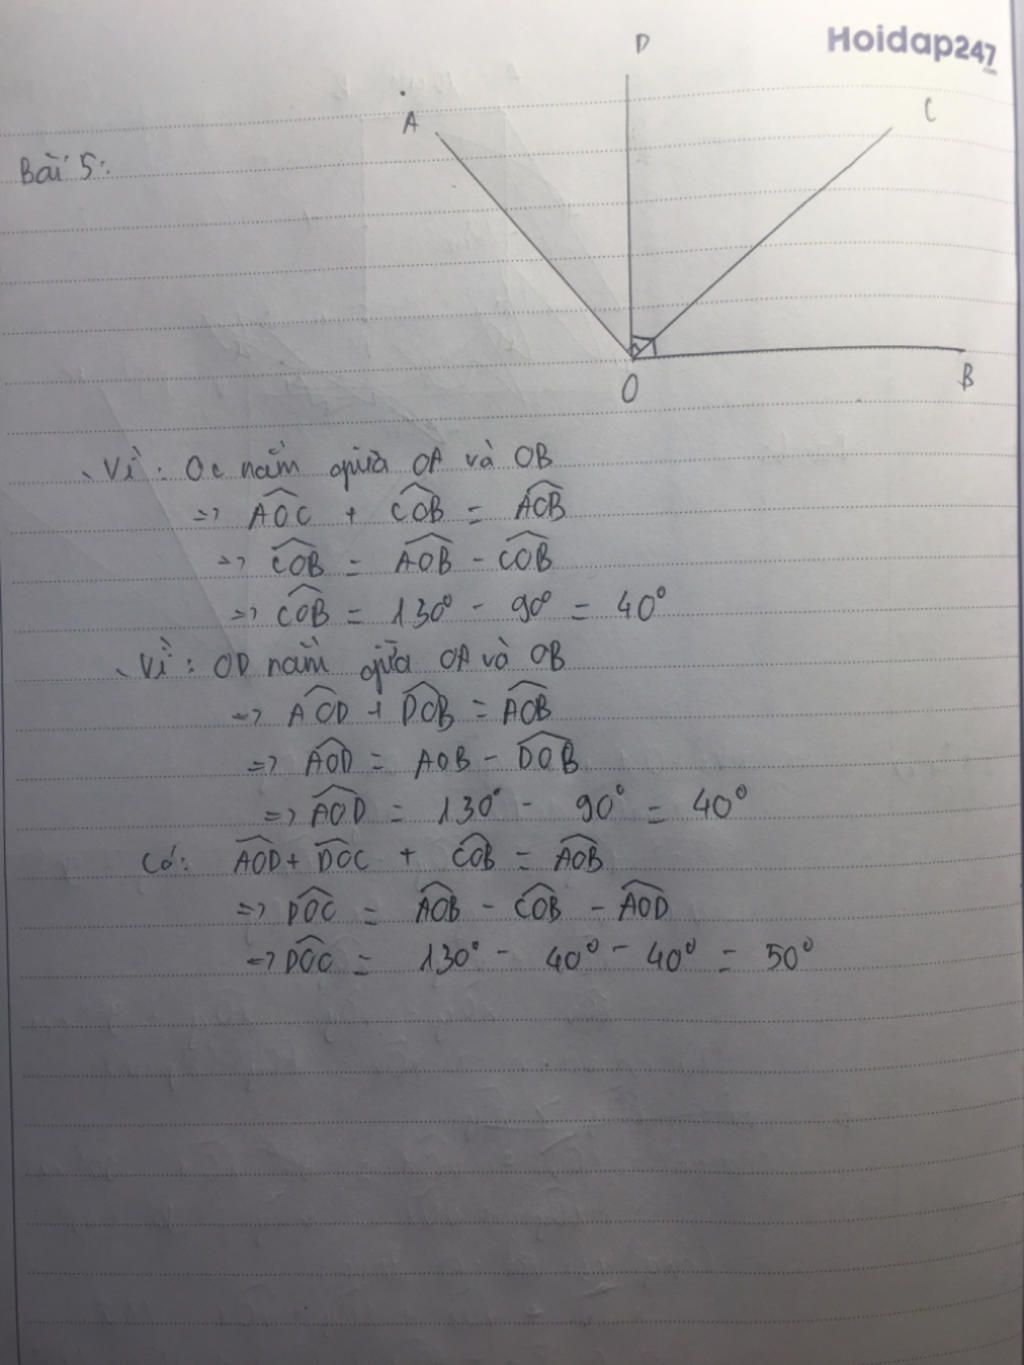 Hoidap247
.com
D
A
C
Bài 5:
O
B
Vì: OC nằm giữa OA và OB
=> AOC + COB = AOB
=> COB = AOB - COB
=> COB = 130° - 90° = 40°
Vì: OD nằm giữa OA và OB
=> AOD + DOB = AOB
=> AOD = AOB - DOB
=> AOD = 130° - 90° = 40°
Có: AOD + DOC + COB = AOB
=> DOC = AOB - COB - AOD
=> DOC = 130° - 40° - 40° = 50°